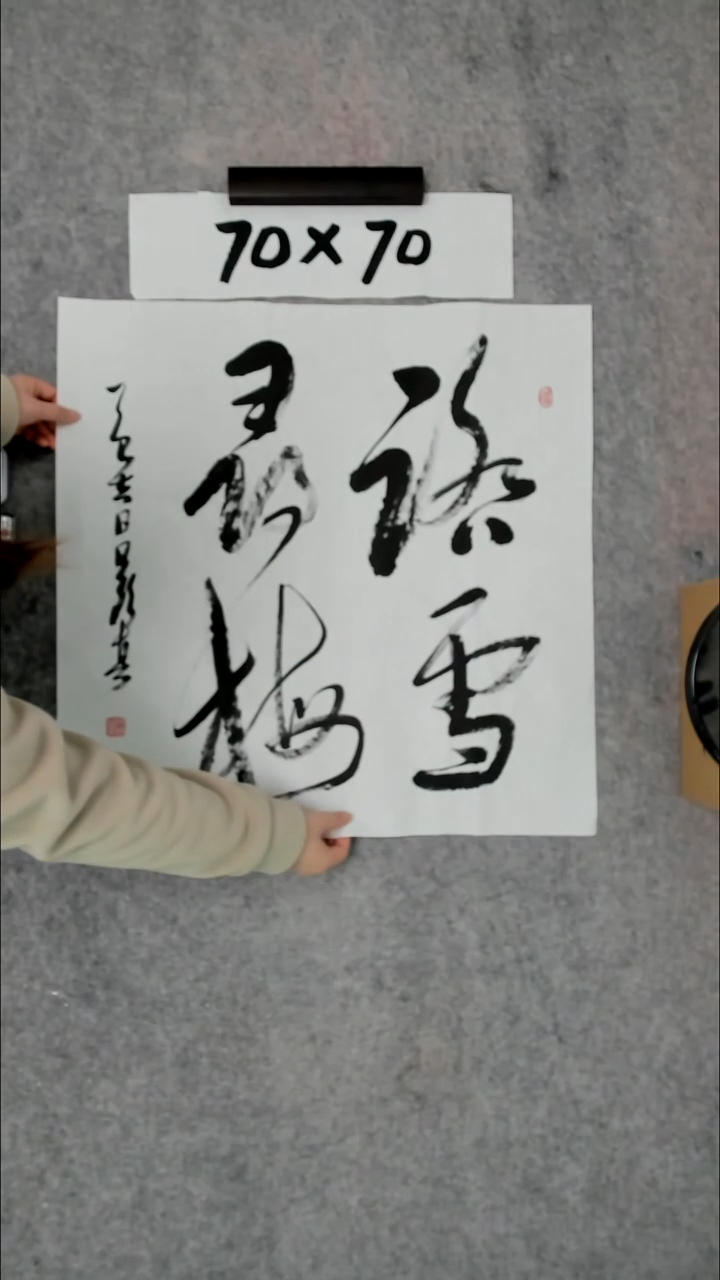 70×70
踏雪
尋梅
吉日